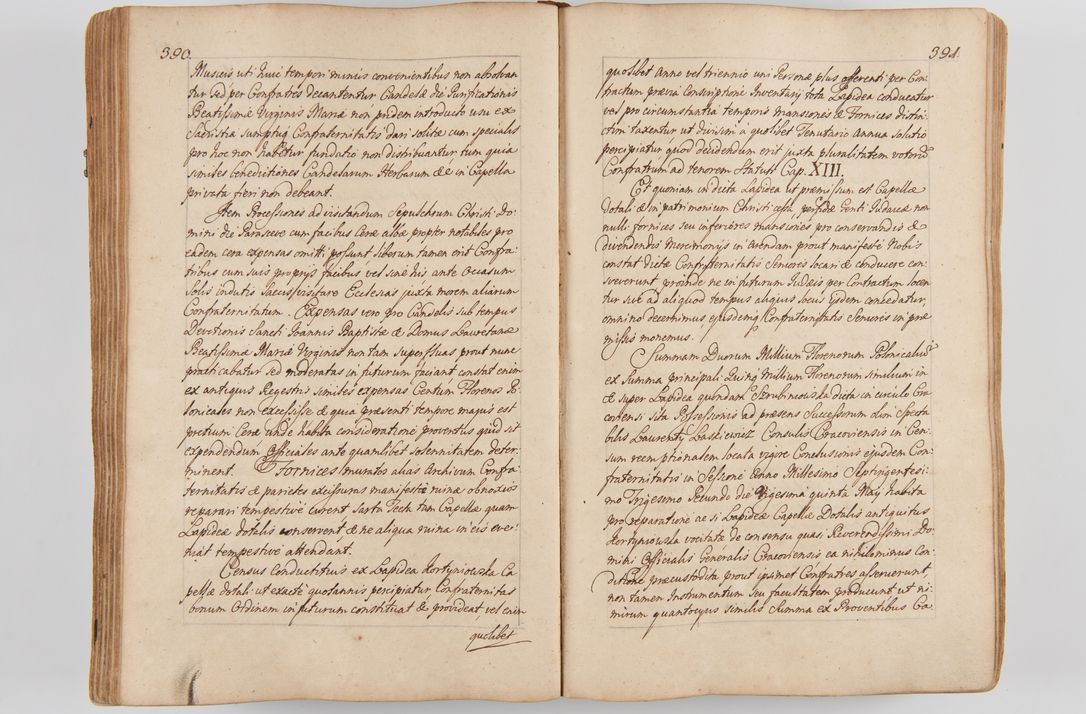 390.
Musicis uti huic tempori minus convenientibus non absolvan
tur sed per Confratres decantentur Candelæ die Purificationis
Beatissimæ Virginis Mariæ non pridem introducto usu ex
Sacristia sumptu Confraternitatis dari solitæ cum specialis
pro hoc non habetur fundatio non distribuantur tum quia
similes benedictiones Candelarum Herbarum &c in Capella
privata fieri non debeant.
Item Processiones ad visitandum Sepulchrum Christi Do
mini die Parasceve cum facibus Ceræ albæ propter notabiles pro
eadem cera expensas omitti possunt liberum tamen erit Confra
tribus cum suis proprijs facibus vel sine his ante Occasum
Solis indutis Saccis visitare Ecclesias juxta morem aliarum
Confraternitatum. Expensas vero pro Candelis sub tempus
Devotionis Sancti Joannis Baptistæ & Domus Lauretanæ
Beatissimæ Mariæ Virginis non tam superfluas prout nunc
practicabatur sed moderatas in futurum faciant constat enim
ex antiquis Regestris similes expensas Centum Florenos Po
lonicales non excessisse & quia præsenti tempore magis est
pretium Ceræ unde habita consideratione proventus quid sit
expendendum Officiales ante quamlibet Solennitatem deter
minent. Fornices muratos alias Archivum Confra
ternitatis & parietes excissuras manifestæ ruinæ obnoxios
reparari tempestive curent Sarta Tecta tam Capellæ quam
Lapideæ dotalis conservent & ne aliqua ruina in eis eve
niat tempestive attendant.
Census conductitius ex Lapidea Kortyniowska Ca
pellæ dotali ut exacte quotannis percipiatur, Confraternitas
bonum Ordinem in futurum constituat & provideat, vel enim
quolibet
391.
quolibet Anno vel triennio uni Personæ plus offerenti per Con
tractum prævia Conscriptione Inventarij tota Lapidea conducatur
vel pro circumstantia temporis mansiones & Fornices distri
ctim taxentur ut divisim a quolibet Tenutario Annua Solutio
percipiatur quod decidendum erit juxta pluralitatem votorũ
Confratrum ad tenorem Statuti Cap. XIII.
Et quoniam in dicta Lapidea ut præmissum est Capellæ
dotali & in patrimonium Christi cessa, perfidæ Genti Judaicæ non
nulli fornices seu inferiores mansiones pro conservandis &
divendendis Mercimonijs in Arendam prout manifeste Nobis
constat dictæ Confraternitatis Seniores locari & conducere con
sveverunt proinde ne in futurum Judæis per Contractum locen
tur sive ad aliquod tempus aliquis locus ijsdem concedatur,
omnino decernimus ejusdemq Confraternitatis Seniores in præ
missis monemus.
Summam Duorum Millium Florenorum Polonicaliũ
ex Summa principali Quinq Millium Florenorum similium in
& super Lapidea quondam Serubinowska dicta in circulo Cra
coviensi sita Possessionis ad præsens Successorum olim Specta
bilis Laurentij Laskiewicz Consulis Cracoviensis in Cen
sum reemptionalem locata vigore Conclusionis ejusdem Con
fraternitatis in Sessione Anno Millesimo Septingentesi:
mo Trigesimo Secundo die Vigesima quinta Maij habita
pro reparatione ac si Lapideæ Capellæ Dotalis antiquitus
Kortyniowska vocitatæ de consensu quasi Reverendissimi Do
mini Officialis Generalis Cracoviensis ea nihilominus Con
ditione præcustodita prout ipsimet Confratres asseruerunt,
non tamen Instrumentum seu facultatem producunt ut ni
mirum quantocyus similis Summa ex Proventibus Ca